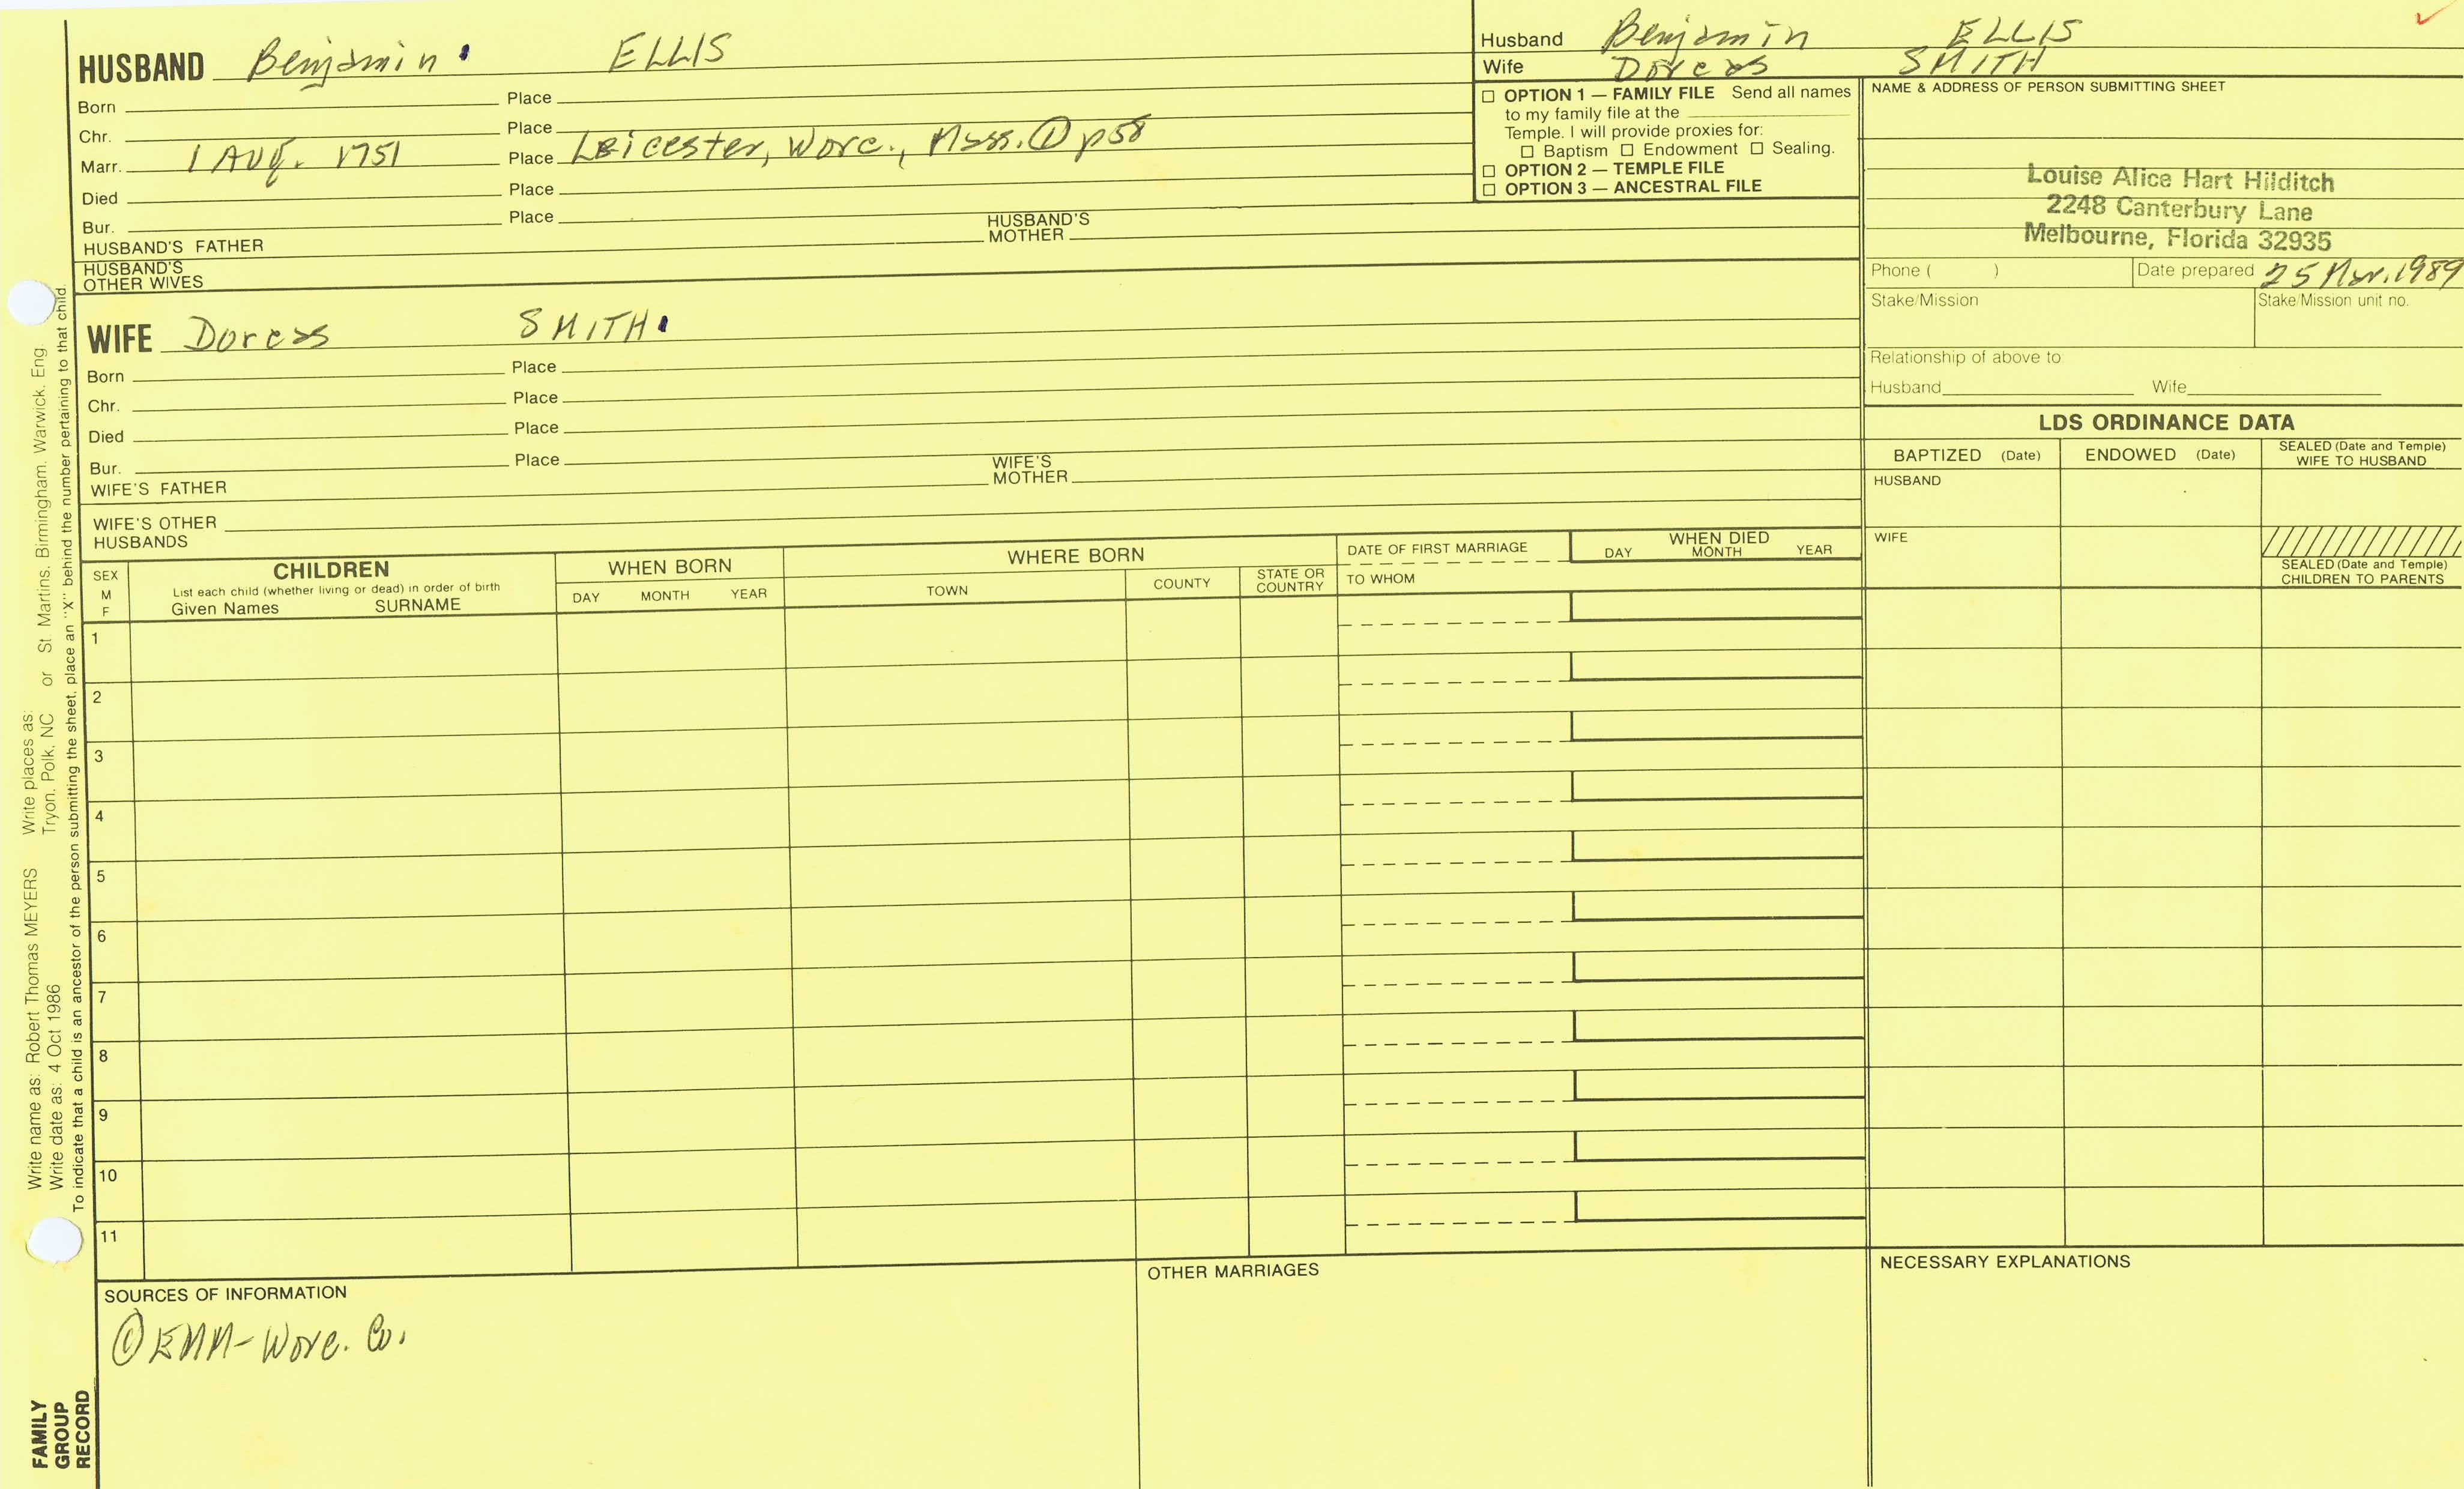 HUSBAND Benjamin ELLIS
Born Place
Chr. Place
Marr. 1 Aug. 1751 Place Leicester, Worc., Mass. ① p58
Died Place
Bur. Place
HUSBAND'S FATHER HUSBAND'S MOTHER
HUSBAND'S OTHER WIVES
WIFE Dorcas SMITH
Born Place
Chr. Place
Died Place
Bur. Place
WIFE'S FATHER WIFE'S MOTHER
WIFE'S OTHER HUSBANDS
Husband Benjamin ELLIS
Wife Dorcas SMITH
☐ OPTION 1 — FAMILY FILE Send all names
to my family file at the
Temple. I will provide proxies for:
☐ Baptism ☐ Endowment ☐ Sealing.
☐ OPTION 2 — TEMPLE FILE
☐ OPTION 3 — ANCESTRAL FILE
NAME & ADDRESS OF PERSON SUBMITTING SHEET
Louise Alice Hart Hilditch
2248 Canterbury Lane
Melbourne, Florida 32935
Phone ( ) Date prepared 25 Mar. 1989
Stake/Mission Stake/Mission unit no.
Relationship of above to
Husband Wife
LDS ORDINANCE DATA
BAPTIZED (Date) ENDOWED (Date) SEALED (Date and Temple) WIFE TO HUSBAND
HUSBAND
WIFE
SEALED (Date and Temple)
CHILDREN TO PARENTS
SEX M F
CHILDREN
List each child (whether living or dead) in order of birth
Given Names SURNAME
WHEN BORN
DAY MONTH YEAR
WHERE BORN
TOWN COUNTY STATE OR COUNTRY
DATE OF FIRST MARRIAGE
TO WHOM
WHEN DIED
DAY MONTH YEAR
1
2
3
4
5
6
7
8
9
10
11
SOURCES OF INFORMATION
① EMM-Worc. Co.
OTHER MARRIAGES
NECESSARY EXPLANATIONS
Write name as: Robert Thomas MEYERS Write places as:
Write date as: 4 Oct 1986 Tryon, Polk, NC or St. Martins, Birmingham, Warwick, Eng.
To indicate that a child is an ancestor of the person submitting the sheet, place an "X" behind the number pertaining to that child.
FAMILY
GROUP
RECORD